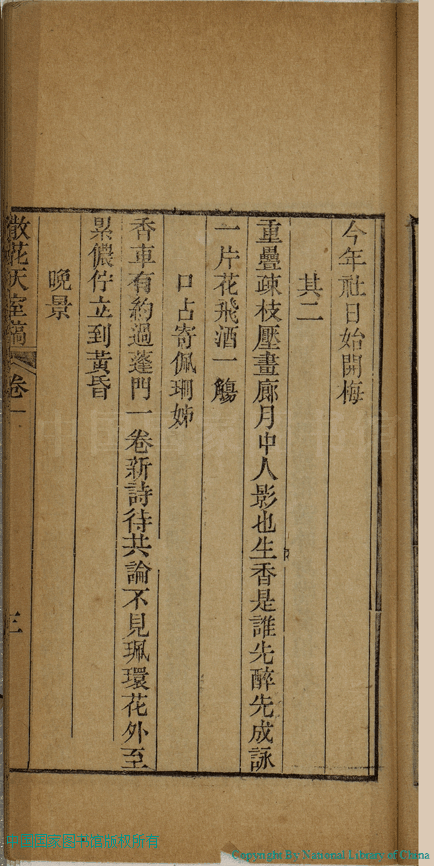 今年社日始開梅
其二
重疊疎枝壓畫廊月中人影也生香是誰先醉先成詠
一片花飛酒一觴
口占寄佩珊姊
香車有約過蓬門一卷新詩待共論不見珮環花外至
累儂佇立到黃昏
晚景
散花天室稿 卷一 三
中国国家图书馆版权所有
Copyright By National Library of China